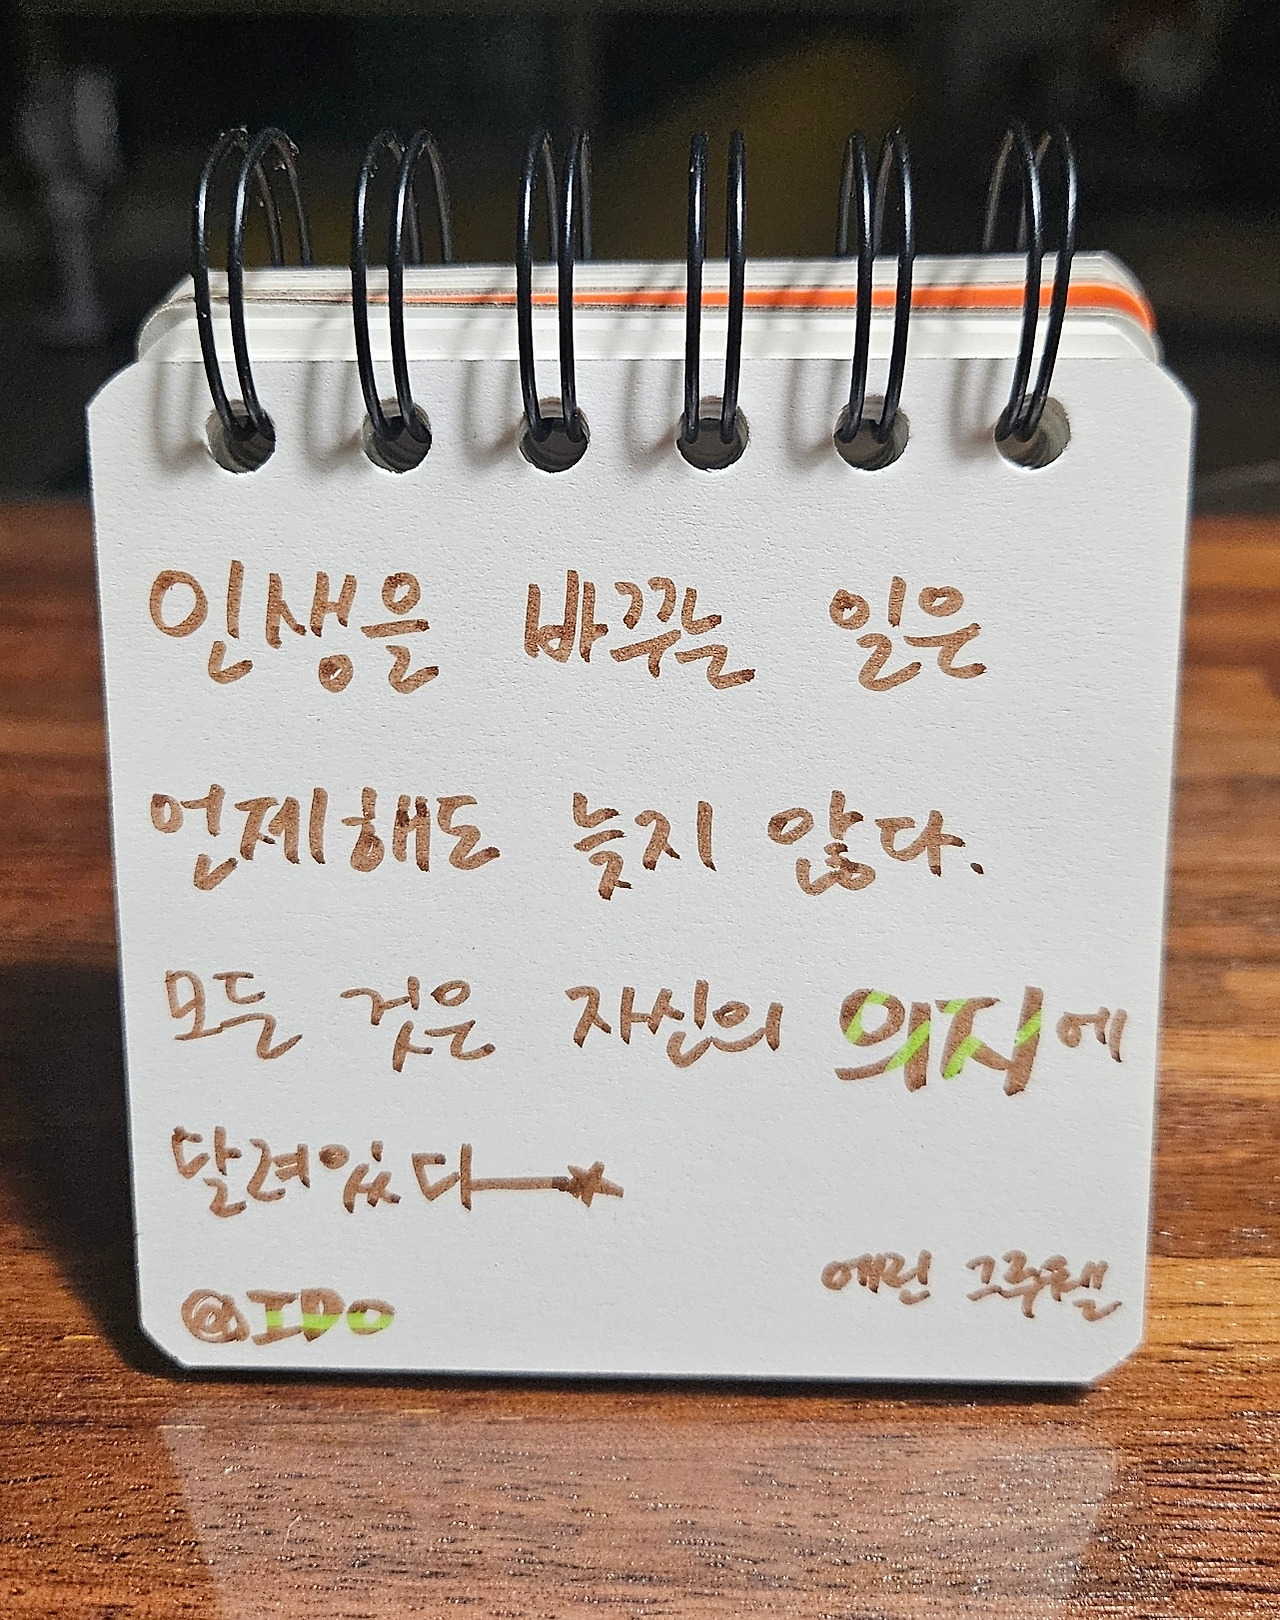 인생을 바꾸는 일은
언제해도 늦지 않다.
모든 것은 자신의 의지에
달려있다
에린 그루웰
@IDO